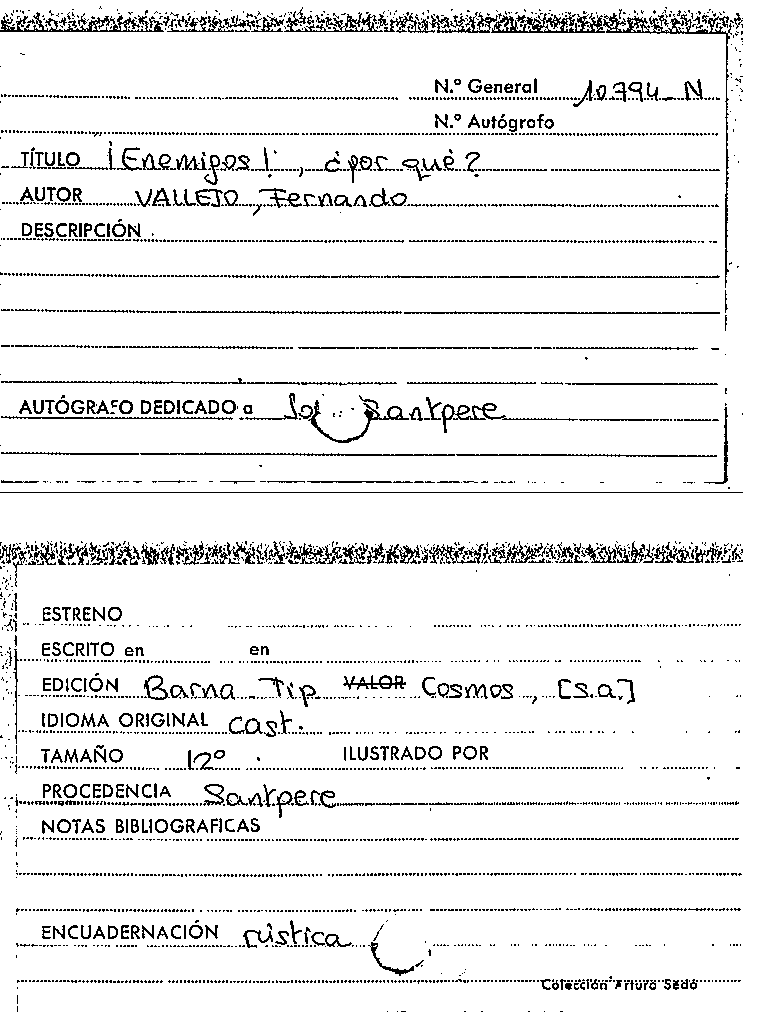 N.º General 10.794-N
N.º Autógrafo
TÍTULO ¡Enemigos!, ¿por qué?
AUTOR VALLEJO, Fernando
DESCRIPCIÓN
AUTÓGRAFO DEDICADO a Santpere
ESTRENO
ESCRITO en en
EDICIÓN Barna Tip VALOR Cosmos, [s.a.]
IDIOMA ORIGINAL cast.
TAMAÑO 12º ILUSTRADO POR
PROCEDENCIA Santpere
NOTAS BIBLIOGRAFICAS
ENCUADERNACIÓN rústica
Colección Arturo Sedó